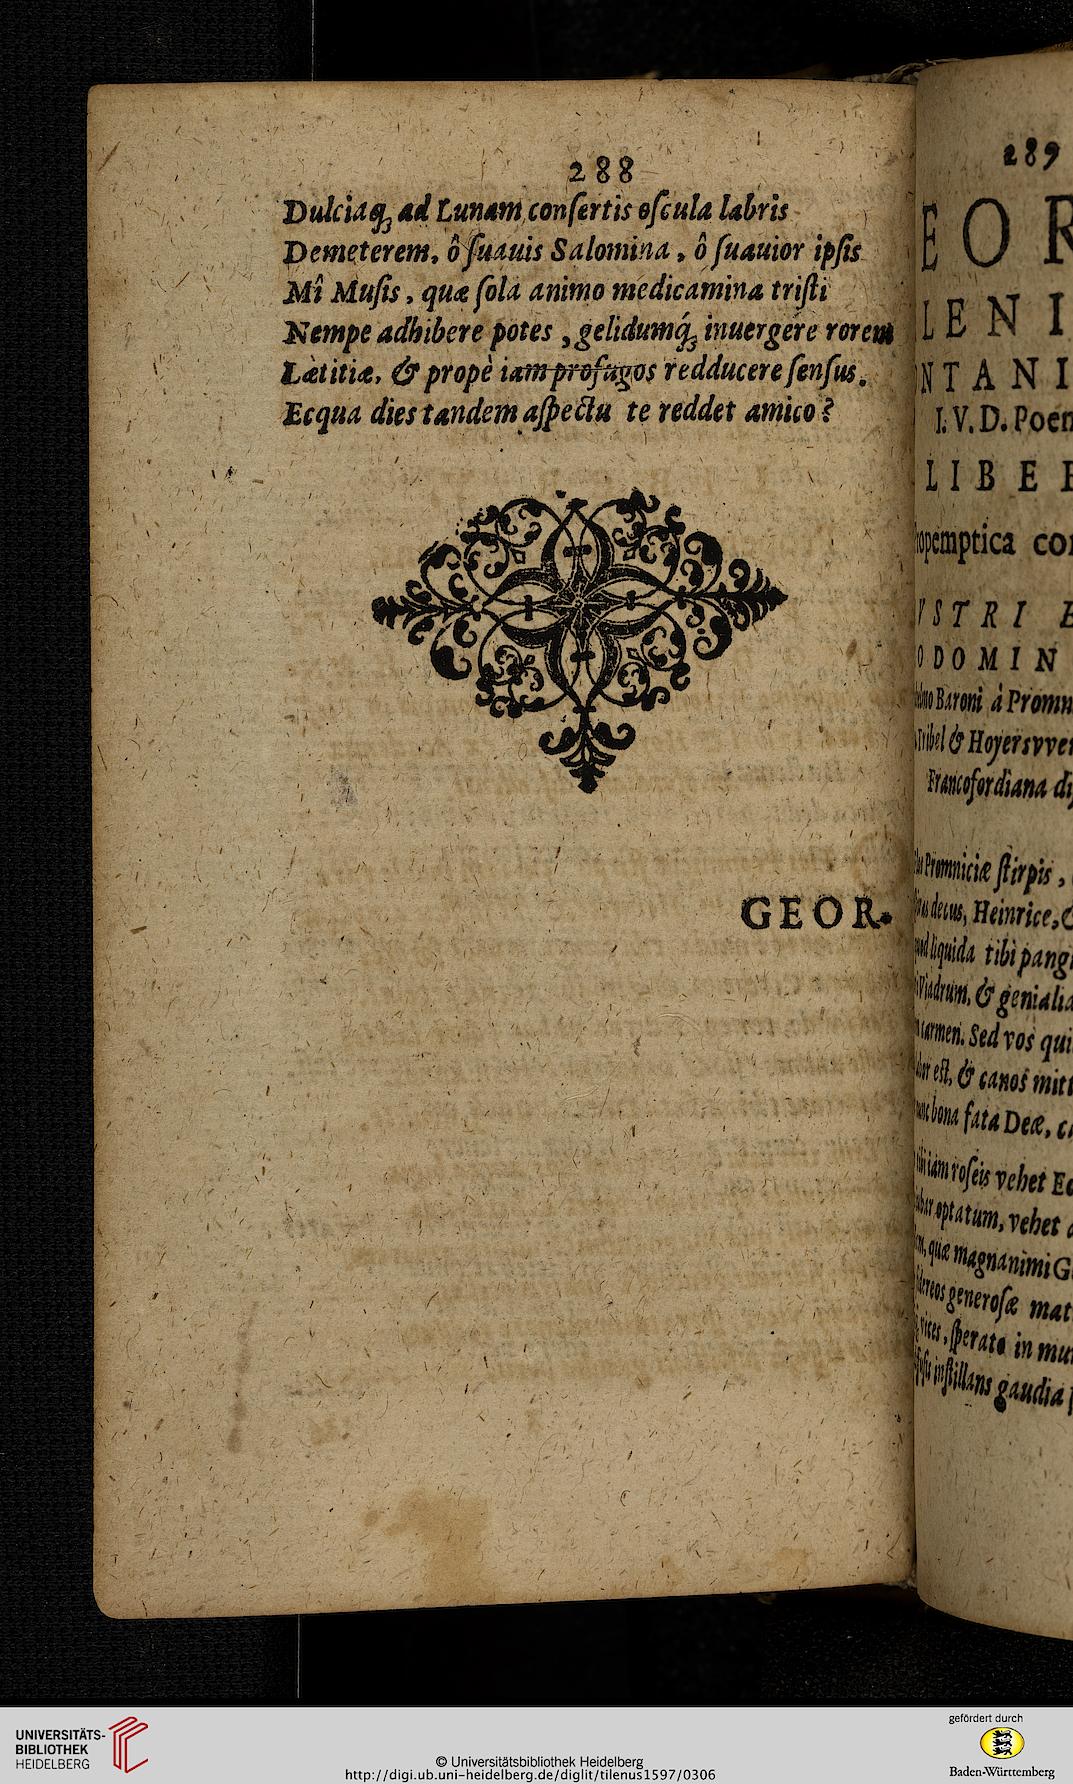 288
Dulciaq́ꝫ ad Lunam consertis oscula labris
Demeterem, ô ſuauis Salomina, ô ſuauior ipſis
Mî Muſis, quæ ſola animo medicamina triſti
Nempe adhibere potes, gelidumq́ꝫ inuergere rorem
Lætitiæ, & propè iam profugos redducere ſenſus.
Ecqua dies tandem aſpectu te reddet amico?
GEOR.
289
EOR
LENI
NTANI
I. V. D. Poem
LIBER
opemptica
VSTRI
ODOMIN
Baroni à Promn
& Hoyersvver
Francofordiana
Promniciæ ſtirpis,
decus, Heinrice,
liquida tibi pang
Viadrum, & genialia
carmen. Sed vos qui
eſt, & canos mitt
bona fata Deæ,
iam roſeis vehet
optatum, vehet
quæ magnanimi
generoſæ mat
vices, ſperato in
inſtillans gaudia
UNIVERSITÄTS-
BIBLIOTHEK
HEIDELBERG
© Universitätsbibliothek Heidelberg
http://digi.ub.uni-heidelberg.de/diglit/tilenus1597/0306
gefördert durch
Baden-Württemberg